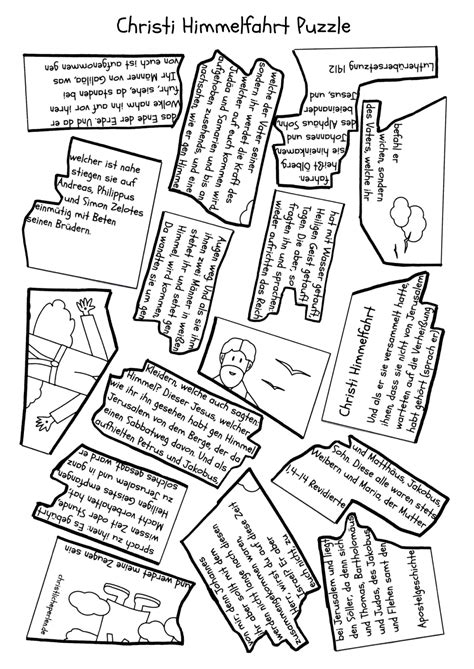 Christi Himmelfahrt Puzzle
das Ende der Erde. Und da er
Wolke nahm ihn auf vor ihren
fuhr, siehe, da standen bei
Ihr Männer von Galiläa, was
von euch ist aufgenommen gen
welche der Vater seiner
sondern ihr werdet die Kraft des
welcher auf euch kommen wird
Judäa und Samarien und bis an
aufgehoben zusehends und eine
nachsahen, wie er gen Himmel
fahren
heißt Ölberg
sie hineinkamen
Johannes und
des Alphäus Sohn
beieinander
Jesus, und
Lutherübersetzung 1912
befahl er
wichen, sondern
des Vaters, welche ihr
welcher ist nahe
stiegen sie auf
Andreas, Philippus
und Simon Zelotes
einmütig mit Beten
seinen Brüdern.
Augen weg. Und als sie ihm
ihnen zwei Männer in weißen
stehet ihr und sehet gen
Himmel, wird kommen,
Da wandten sie um gen
hat mit Wasser getauft,
Heiligen Geist getauft
Tagen. Die aber, so
fragten ihn und sprachen:
wieder aufrichten das Reich
Christi Himmelfahrt
Und als er sie versammelt hatte,
ihnen, dass sie nicht von Jerusalem
warteten auf die Verheißung
habt gehört (sprach er)
Kleidern, welche auch sagten:
Himmel? Dieser Jesus, welcher
wie ihr ihn gesehen habt gen Himmel
Jerusalem von dem Berge, der da
einen Sabbatweg davon. Und als
aufhielten Petrus und Jakobus,
und Matthäus, Jakobus,
Sohn. Diese alle waren stets
Weibern und Maria, der Mutter
1,4-14 Revidierte
sprach zu ihnen: Es gebührt
wissen Zeit oder Stunde
Macht vorbehalten hat
Heiligen Geistes empfangen
zu Jerusalem und in ganz
solches gesagt, ward er
von mir; denn Johannes
ihr aber sollt mit dem
werden nicht lange nach diesen
zusammengekommen waren,
Herr, wirst du auf diese Zeit
Israel? Er aber
Euch nicht zu
bei Jerusalem und liegt
den Söller, da denn sich
und Thomas, Bartholomäus
und Judas, des Jakobus
und Flehen samt den
Apostelgeschichte
und werdet meine Zeugen sein
christlicheperlen.de